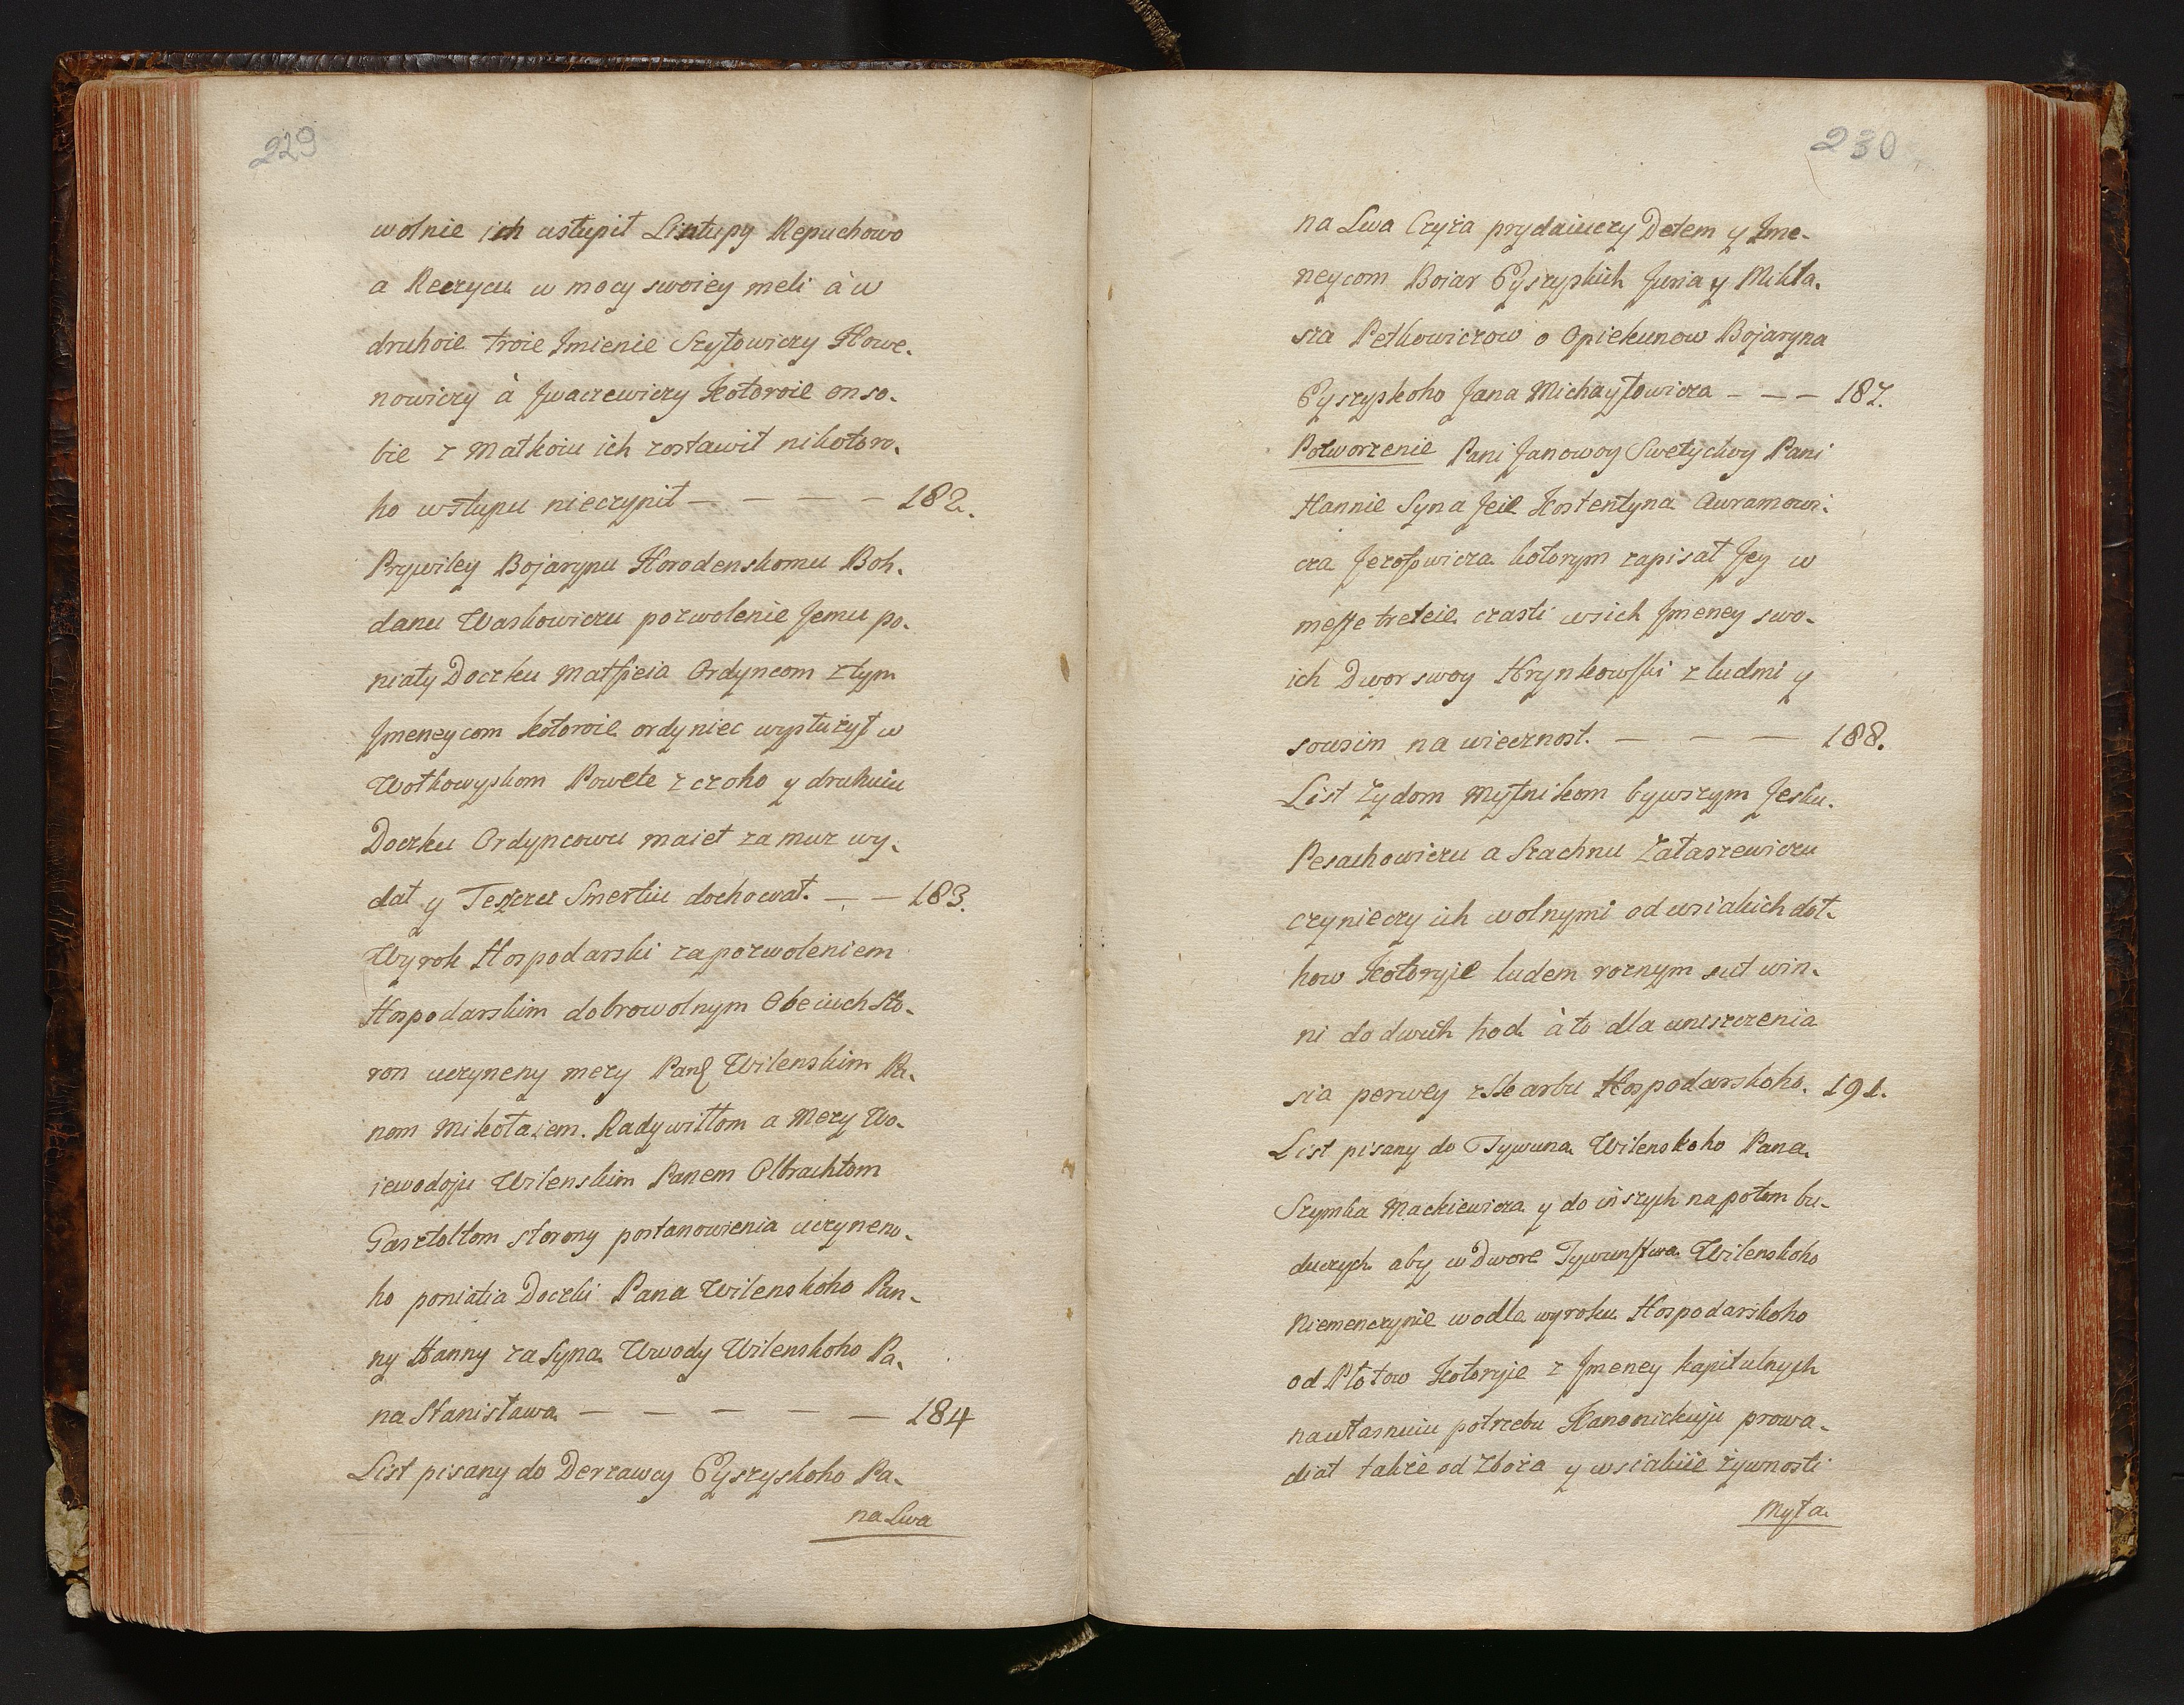 229
wolnie ich ustupił Lintupy Repuchowo
a Reczycu w mocy swoiey meli à w
druhoie troie Jmienie Szyłowiczy Howe-
nowiczy à Jwaczewiczy Kotoroie on so-
bie z Matkoiu ich zostawił nikotoro-
ho wstupu nieczynił — — — — 182.
Prywiley Bojarynu Horodenskomu Boh-
danu Waskowiczu pozwolenie Jemu po-
niaty Doczku Matfieia Ordyncom z tym
Jmeneycom kotoroie ordyniec wysłużył w
Wołkowyskom Powete z czoho y druhuiu
Doczku Ordyncowu maiet za muz wy-
dat y Teszczu Smertiu dochowat. — — 183.
Wyrok Hospodarski za pozwoleniem
Hospodarskim dobrowolnym Obeiuch Sto-
ron uczyneny mezy Pan Wilenskim Pa-
nom Mikołaiem Radywiłłom a Mezy Wo-
iewodoju Wilenskim Panem Olbrachtom
Gasztołtom storony postanowienia uczyneno-
ho poniatia Doczki Pana Wilenskoho Pan-
ny Hanny za Syna Wwody Wilenskoho Pa-
na Stanisława — — — — — 184
List pisany do Derzawcy Eyszyskoho Pa-
na Lwa
230
na Lwa Czyża prydaiuczy Detem y Jme-
neycom Bojar Eyszyskich Juria y Mikła-
sza Petkowiczow o Opiekunow Bojaryna
Eyszyskoho Jana Michayłowicza — — — 187.
Potworzenie Pani Janowoy Swetyckoy Pani
Hannie Syna Jeie Kostentyna Awramowi-
cza Jezofowicza kotorym zapisał Jey w
meste treteie czasti wsich Jmeney swo-
ich Dwor swoy Hrynkowski z ludmi y
sowsim na wiecznost. — — — 188.
List Zydom Mytnikom bywszym Jesku
Pesachowiczu a Szachnu Załaszewiczu
czynieczy ich wolnymi od wsiakich doł-
how Kotoryje ludem roznym sut win-
ni do dwuch hod à to dla uniszczenia
sia perwey z Skarbu Hospodarskoho. 191.
List pisany do Tywuna Wilenskoho Pana
Szymka Mackiewicza y do inszych na potom bu-
duczych aby w Dwore Tywunstwa Wilenskoho
Niemenczynie wodle wyroku Hospodarskoho
od Płotow Kotoryje z Jmeney kapitulnych
na własnuiu potrzebu Kanonickuju prowa-
diat takze od Zboża y wsiakiie zywnosti
Myta